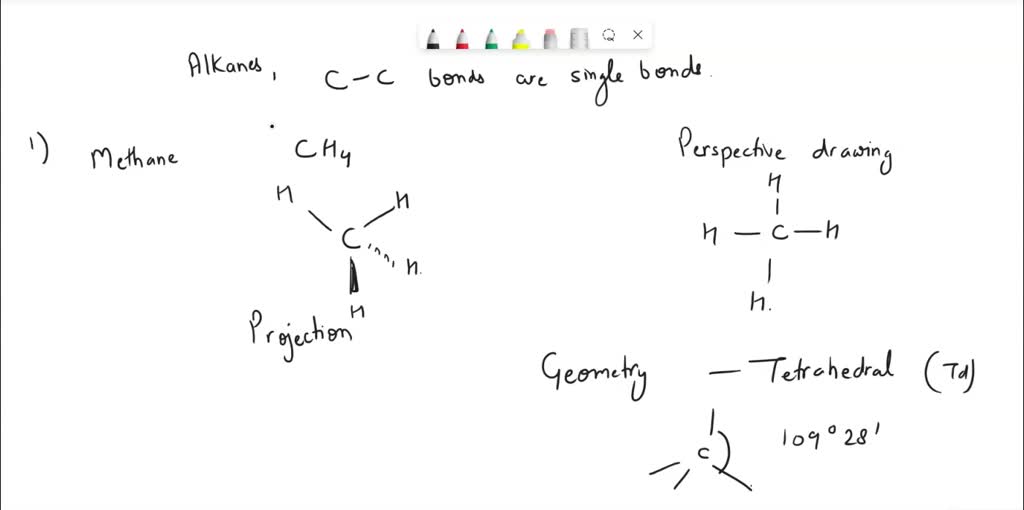 Alkanes, C-C bonds are single bonds.
1) Methane CH4
Perspective drawing
H
H
C
H
H
H
H - C - H
H.
Projection
Geometry - Tetrahedral (Td)
C
109° 28'